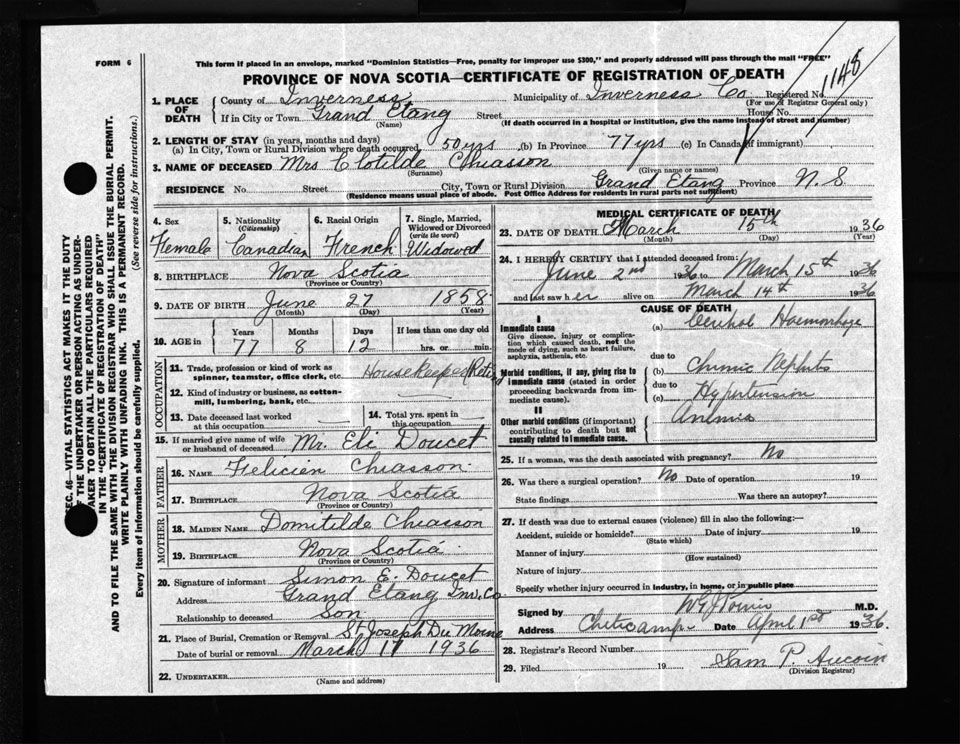 FORM 6
This form if placed in an envelope, marked "Dominion Statistics—Free, penalty for improper use $300," and properly addressed will pass through the mail "FREE"
PROVINCE OF NOVA SCOTIA—CERTIFICATE OF REGISTRATION OF DEATH
1148
1. PLACE OF DEATH
County of Inverness Municipality of Inverness Co Registered No.
(For use of Registrar General only)
If in City or Town Grand Etang Street House No.
(Name) (If death occurred in a hospital or institution, give the name instead of street and number)
2. LENGTH OF STAY (in years, months and days)
(a) In City, Town or Rural Division where death occurred 50 yrs (b) In Province 77 yrs (c) In Canada (if immigrant)
3. NAME OF DECEASED Mrs Clotilde Chiasson
(Surname) (Given name or names)
RESIDENCE No. Street City, Town or Rural Division Grand Etang Province N. S
(Residence means usual place of abode. Post Office Address for residents in rural parts not sufficient)
4. Sex
Female
5. Nationality
(Citizenship)
Canadian
6. Racial Origin
French
7. Single, Married, Widowed or Divorced
(write the word)
Widowed
8. BIRTHPLACE Nova Scotia
(Province or Country)
9. DATE OF BIRTH June 27 1858
(Month) (Day) (Year)
10. AGE in
Years Months Days If less than one day old
77 8 12 hrs. or min.
OCCUPATION
11. Trade, profession or kind of work as spinner, teamster, office clerk, etc. Housekeeper
12. Kind of industry or business, as cotton-mill, lumbering, bank, etc.
13. Date deceased last worked at this occupation
14. Total yrs. spent in this occupation
15. If married give name of wife or husband of deceased Mr. Eli Doucet
FATHER
16. NAME Felicien Chiasson
17. BIRTHPLACE Nova Scotia
(Province or Country)
MOTHER
18. MAIDEN NAME Domitilde Chiasson
19. BIRTHPLACE Nova Scotia
(Province or Country)
20. Signature of informant Simon E. Doucet
Address Grand Etang Inv. Co.
Relationship to deceased Son
21. Place of Burial, Cremation or Removal St Joseph Du Moine
Date of burial or removal March 17 1936
22. UNDERTAKER
(Name and address)
MEDICAL CERTIFICATE OF DEATH
23. DATE OF DEATH March 15th 1936
(Month) (Day) (Year)
24. I HEREBY CERTIFY that I attended deceased from:
June 2nd 1936 to March 15th 1936
and last saw her alive on March 14th 1936
CAUSE OF DEATH
I
Immediate cause
Give disease, injury or complication which caused death, not the mode of dying, such as heart failure, asphyxia, asthenia, etc.
(a) Cerebral Haemorrhage
due to
Morbid conditions, if any, giving rise to immediate cause (stated in order proceeding backwards from immediate cause).
(b) Chronic Nephritis
due to
(c) Hypertension
II
Other morbid conditions (if important) contributing to death but not causally related to immediate cause.
Anemia
25. If a woman, was the death associated with pregnancy? No
26. Was there a surgical operation? No Date of operation 19
State findings Was there an autopsy?
27. If death was due to external causes (violence) fill in also the following:—
Accident, suicide or homicide? Date of injury 19
(State which)
Manner of injury
(How sustained)
Nature of injury
Specify whether injury occurred in industry, in home, or in public place
Signed by M.D.
Address Cheticamp Date April 1st 1936.
28. Registrar's Record Number
29. Filed 19 Sam P. Aucoin
(Division Registrar)
SEC. 46—VITAL STATISTICS ACT MAKES IT THE DUTY
OF THE UNDERTAKER OR PERSON ACTING AS UNDERTAKER TO OBTAIN ALL THE PARTICULARS REQUIRED
IN THE "CERTIFICATE OF REGISTRATION OF DEATH"
AND TO FILE THE SAME WITH THE DIVISION REGISTRAR WHO SHALL ISSUE THE BURIAL PERMIT.
WRITE PLAINLY WITH UNFADING INK. THIS IS A PERMANENT RECORD.
Every item of information should be carefully supplied. (See reverse side for instructions.)